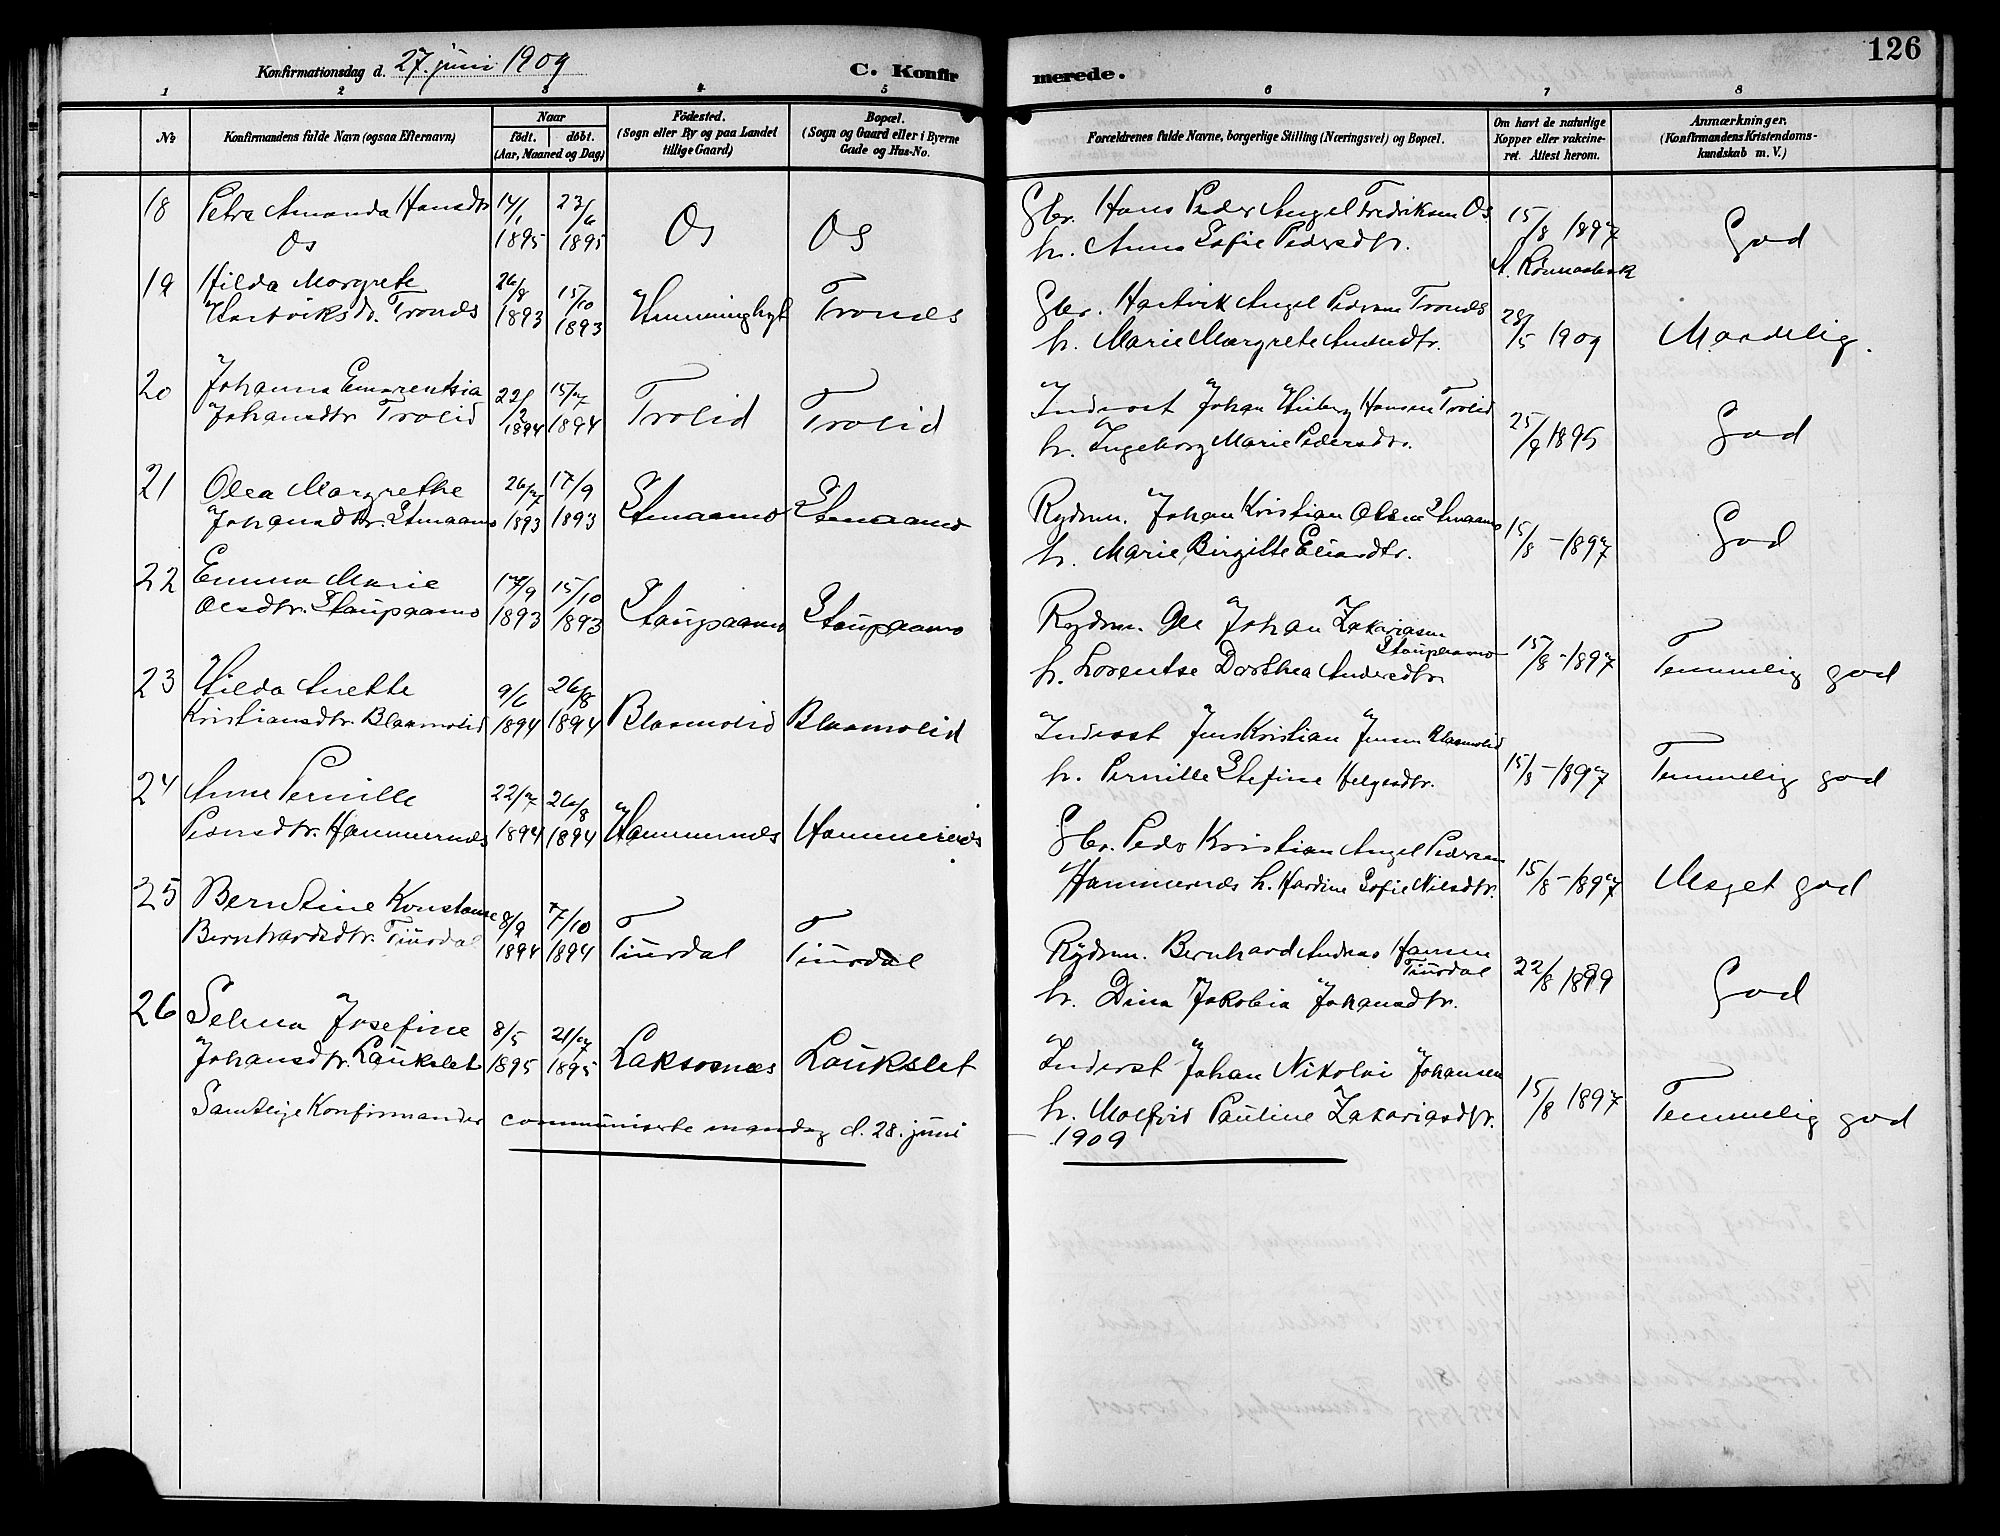 126
Konfirmationsdag d. 27. juni 1909
C. Konfirmerede.
1 2 3 4 5 6 7 8
No
Konfirmandens fulde Navn (ogsaa Efternavn)
Naar
födt. döbt.
(Aar, Maaned og Dag)
Födested.
(Sogn eller By og paa Landet
tillige Gaard)
Bopæl.
(Sogn og Gaard eller i Byerne
Gade og Hus-No.
Forældrenes fulde Navne, borgerlige Stilling (Næringsvei) og Bopæl.
Om havt de naturlige
Kopper eller vakcine-
ret. Attest herom.
Anmærkninger.
(Konfirmandens Kristendoms-
kundskab m. V.)
18 Petra Amanda Hansdtr 14/1 23/6 Os Os Gbr. Hans Peder Angel Fredriksen Os 15/8 1897 God
Os 1895 1895 h. Anna Sofie Pedersdtr.
19 Hilda Margrete 26/8 15/10 Hemminghyt Trones Gbr. Hartvik Angel Pedersen Trones 28/5 1909 Maadelig.
Hartviksdr. Trones 1893 1893 h. Marie Margrete Andersdtr.
20 Johanna Emerentsia 22/2 15/7 Trolid Trolid Inderst Johan Hansen Trolid 25/9 1895 God
Johansdtr Trolid 1894 1894 h. Ingeborg Marie Pedersdtr.
21 Olea Margrethe 26/7 17/9 Rydnm. Johan Kristian Olsen 15/8 - 1897 God
Johansdtr. 1893 1893 h. Marie Birgitte Eliasdtr.
22 Emma Marie 17/9 15/10 Staupaamo Staupaamo Rydnm. Ole Johan Zakariasen 15/8 - 1897 Temmelig god
Olsdtr. Staupaamo 1893 1893 Staupaamo
h. Lorentse Dorthea Andersdtr
23 Hilda Anette 9/6 26/8 Blaamolid Blaamolid Inderst Jens Kristian Jensen Blaamolid 15/8 - 1897 Temmelig god
Kristiansdtr. Blaamolid 1894 1894 h. Pernille Stefine Helgesdtr.
24 Anne Pernille 22/7 26/8 Hammernes Hammernes Gbr. Peder Kristian Angel Pedersen 15/8 - 1897 Meget god
Pedersdtr. Hammernes 1894 1894 Hammernes h. Hardine Sofie Nilsdtr.
25 Berntine Konstanse 8/9 7/10 Tiurdal Tiurdal Rydnm. Bernhard Andreas Hansen 22/8 1899 God
Bernhardsdtr. Tiurdal 1894 1894 Tiurdal
h. Dina Jakobia Johansdtr.
26 Selma Josefine 8/5 21/7 Laksosnes Laukslet Inderst Johan Nikolai Johansen 15/8 1897 Temmelig god
Johansdtr. Laukslet 1895 1895 h. Malfrid Pauline Zakariasdtr.
Samtlige Konfirmander communiserte mandag d. 28. juni 1909